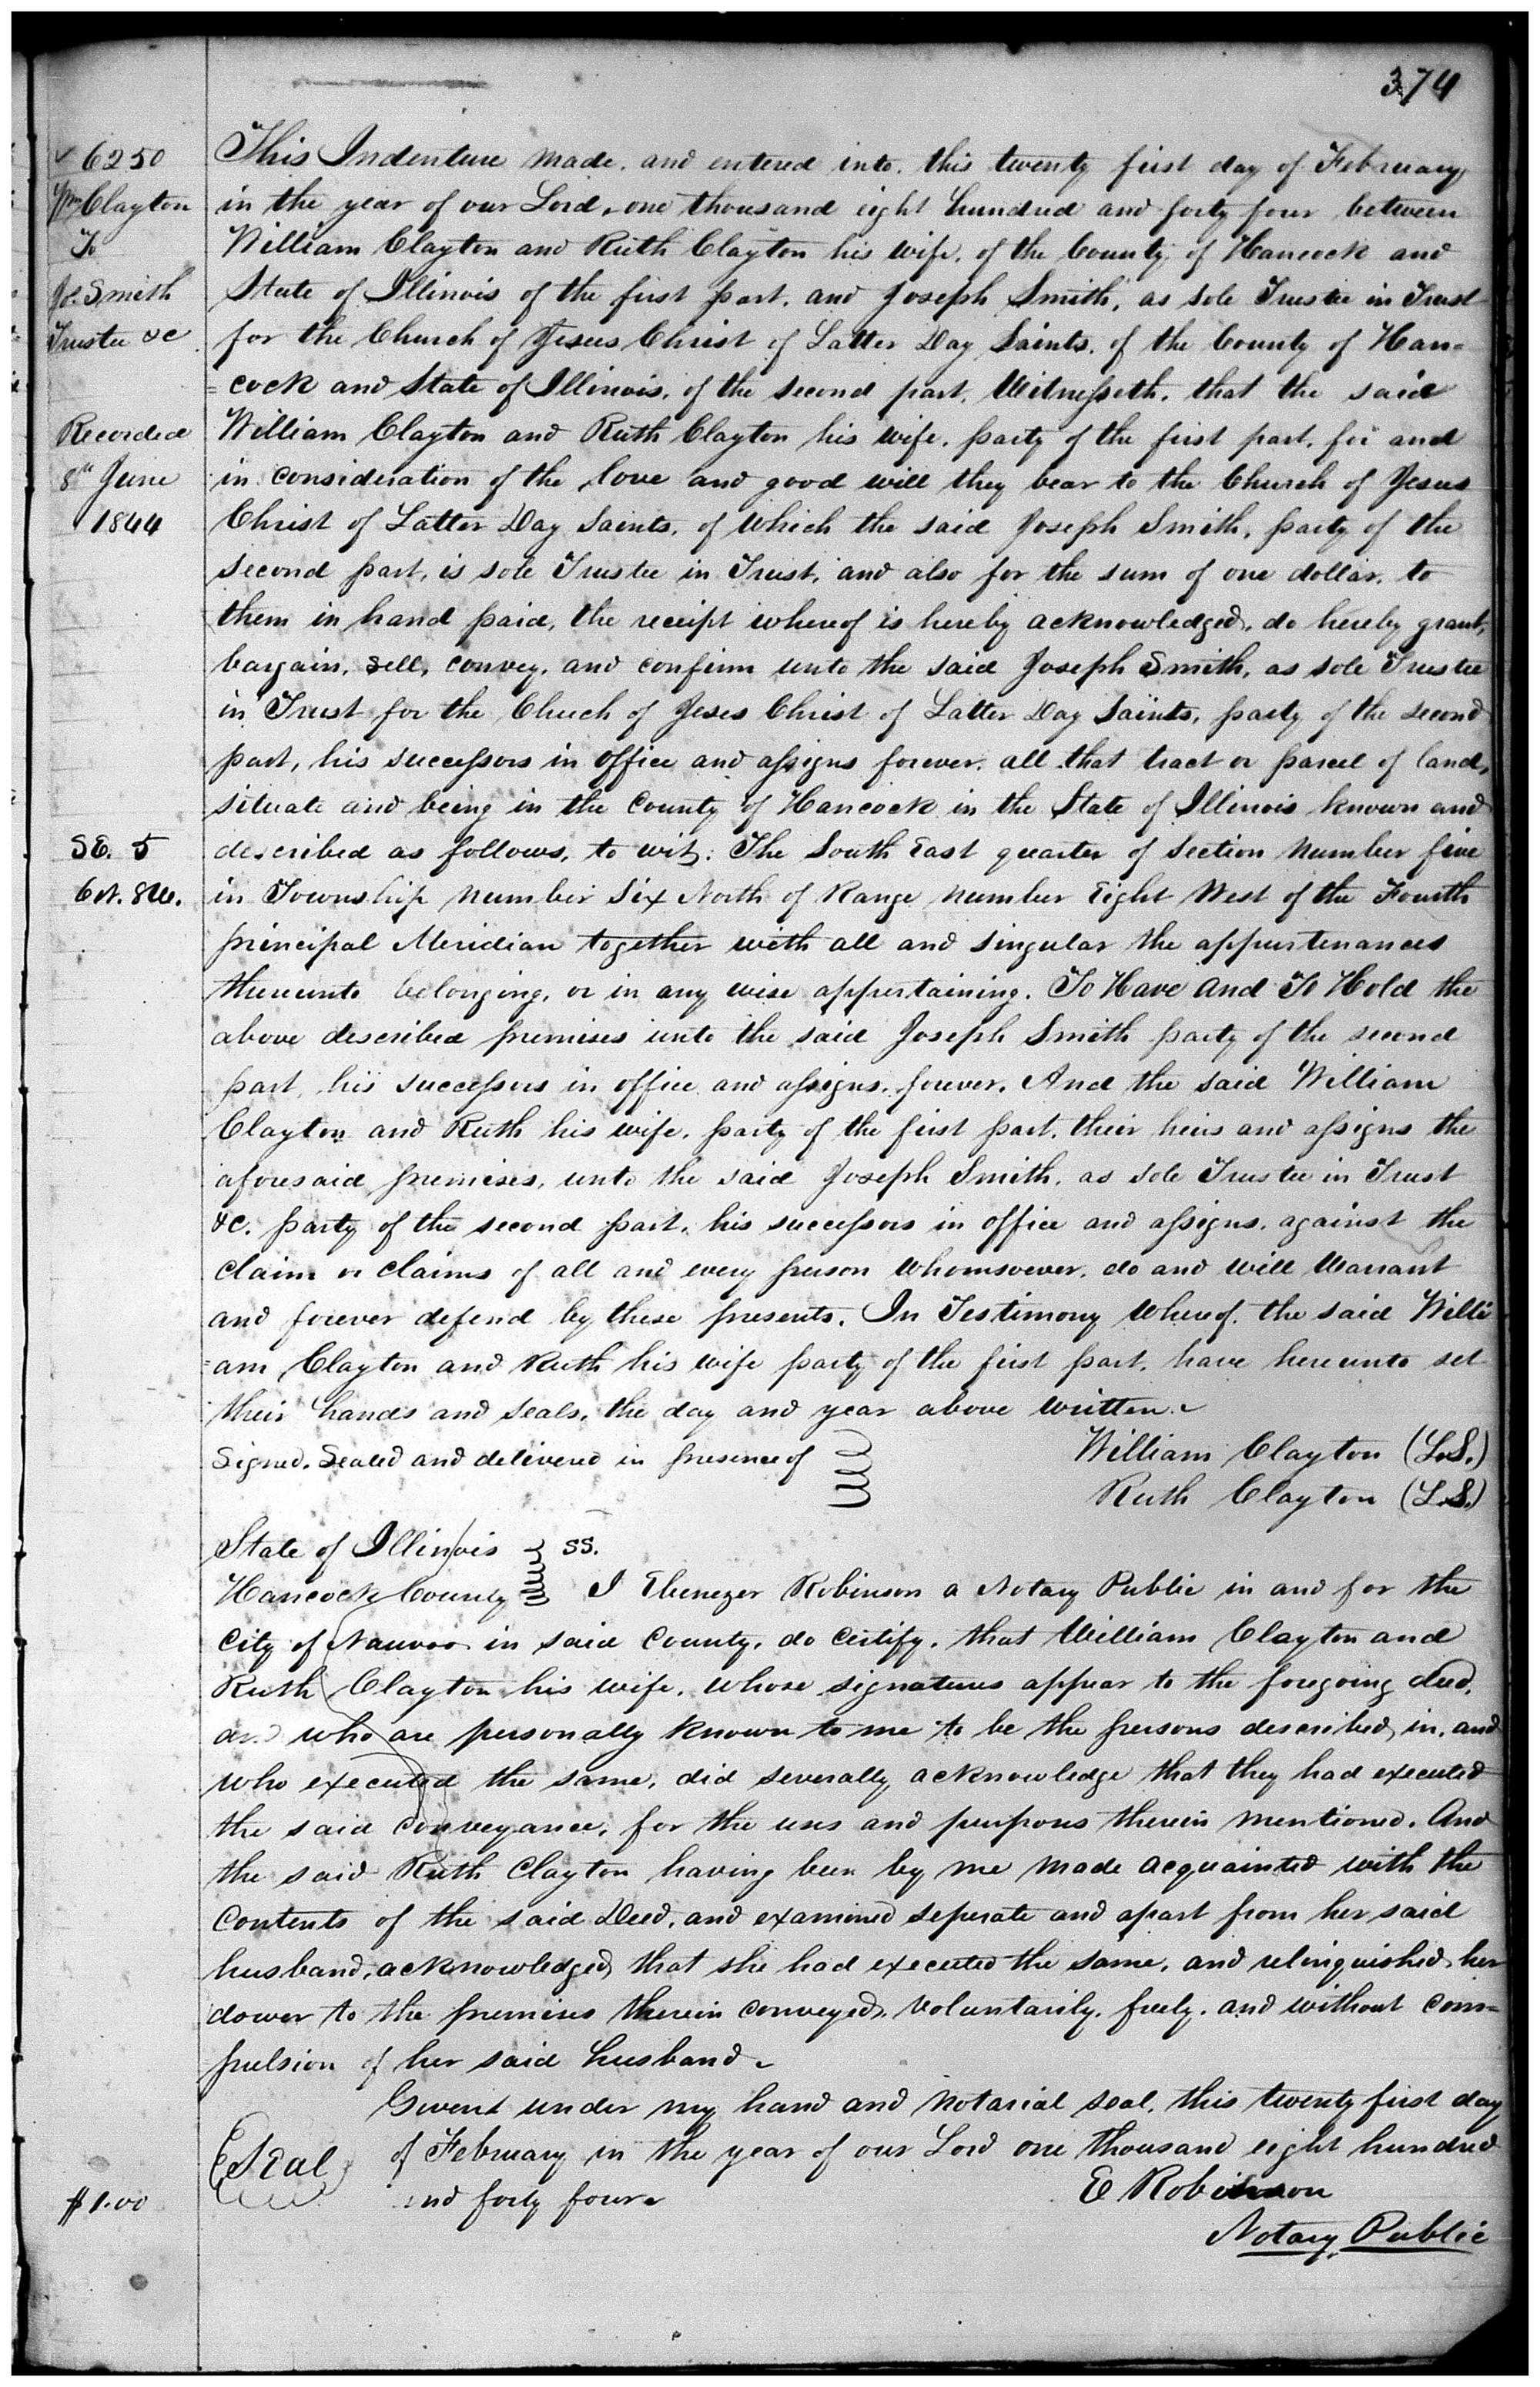 374
✓ 6250
Wm Clayton
To
Jos. Smith
Trustee &c
Recorded
8th June
1844
This Indenture made, and entered into, this twenty first day of February
in the year of our Lord, one thousand eight hundred and forty four between
William Clayton and Ruth Clayton his wife, of the County of Hancock and
State of Illinois of the first part, and Joseph Smith, as sole Trustee in Trust
for the Church of Jesus Christ of Latter Day Saints, of the County of Han=
=cock and State of Illinois, of the second part, Witnesseth, that the said
William Clayton and Ruth Clayton his wife, party of the first part, for and
in consideration of the love and good will they bear to the Church of Jesus
Christ of Latter Day Saints, of which the said Joseph Smith, party of the
second part, is sole Trustee in Trust, and also for the sum of one dollar, to
them in hand paid, the receipt whereof is hereby acknowledged, do hereby grant,
bargain, sell, convey, and confirm unto the said Joseph Smith, as sole Trustee
in Trust for the Chuch of Jeses Christ of Latter Day Saints, party of the second
part, his successors in office and assigns forever, all that tract or parcel of land,
situate and being in the County of Hancock in the State of Illinois known and
SE. 5
6N. 8W.
described as follows, to wit: The South East quarter of Section Number five
in Township Number Six North of Range Number Eight West of the Fourth
principal Meridian together with all and singular the appurtenances
thereunto belonging, or in any wise appertaining. To Have And To Hold the
above described premises unto the said Joseph Smith party of the second
part, his successors in office and assigns, forever. And the said William
Clayton and Ruth his wife, party of the first part, their heirs and assigns the
aforesaid premises, unto the said Joseph Smith, as sole Trustee in Trust
&c. party of the second part, his successors in office and assigns, against the
claim or claims of all and every person whomsoever, do and will Warrant
and forever defend by these presents. In Testimony Whereof, the said Willi
=am Clayton and Ruth his wife party of the first part, have hereunto set
their hands and seals, the day and year above written.
Signed, Sealed and delivered in presence of
William Clayton (L.S.)
Ruth Clayton (L.S.)
State of Illinois ss.
Hancock County I Ebenezer Robinson a Notary Public in and for the
City of Nauvoo in said County, do certify, that William Clayton and
Ruth Clayton his wife, whose signatures appear to the foregoing deed,
and who are personally known to me to be the persons described in, and
who executed the same, did severally acknowledge that they had executed
the said conveyance, for the uses and purposes therein mentioned. And
the said Ruth Clayton having been by me made acquainted with the
contents of the said Deed, and examined seperate and apart from her said
husband, acknowledged that she had executed the same, and relinquished her
dower to the premises therein conveyed, voluntarily, freely, and without com=
pulsion of her said husband.
Given under my hand and Notarial seal, this twenty first day
of February in the year of our Lord one thousand eight hundred
and forty four
Seal
E Robinson
Notary Public
$1.00